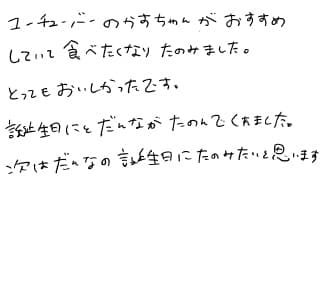 ユーチューバーのかすちゃんがおすすめ
していて食べたくなりたのみました。
とってもおいしかったです。
誕生日にとだんながたのんでくれました。
次はだんなの誕生日にたのみたいと思います